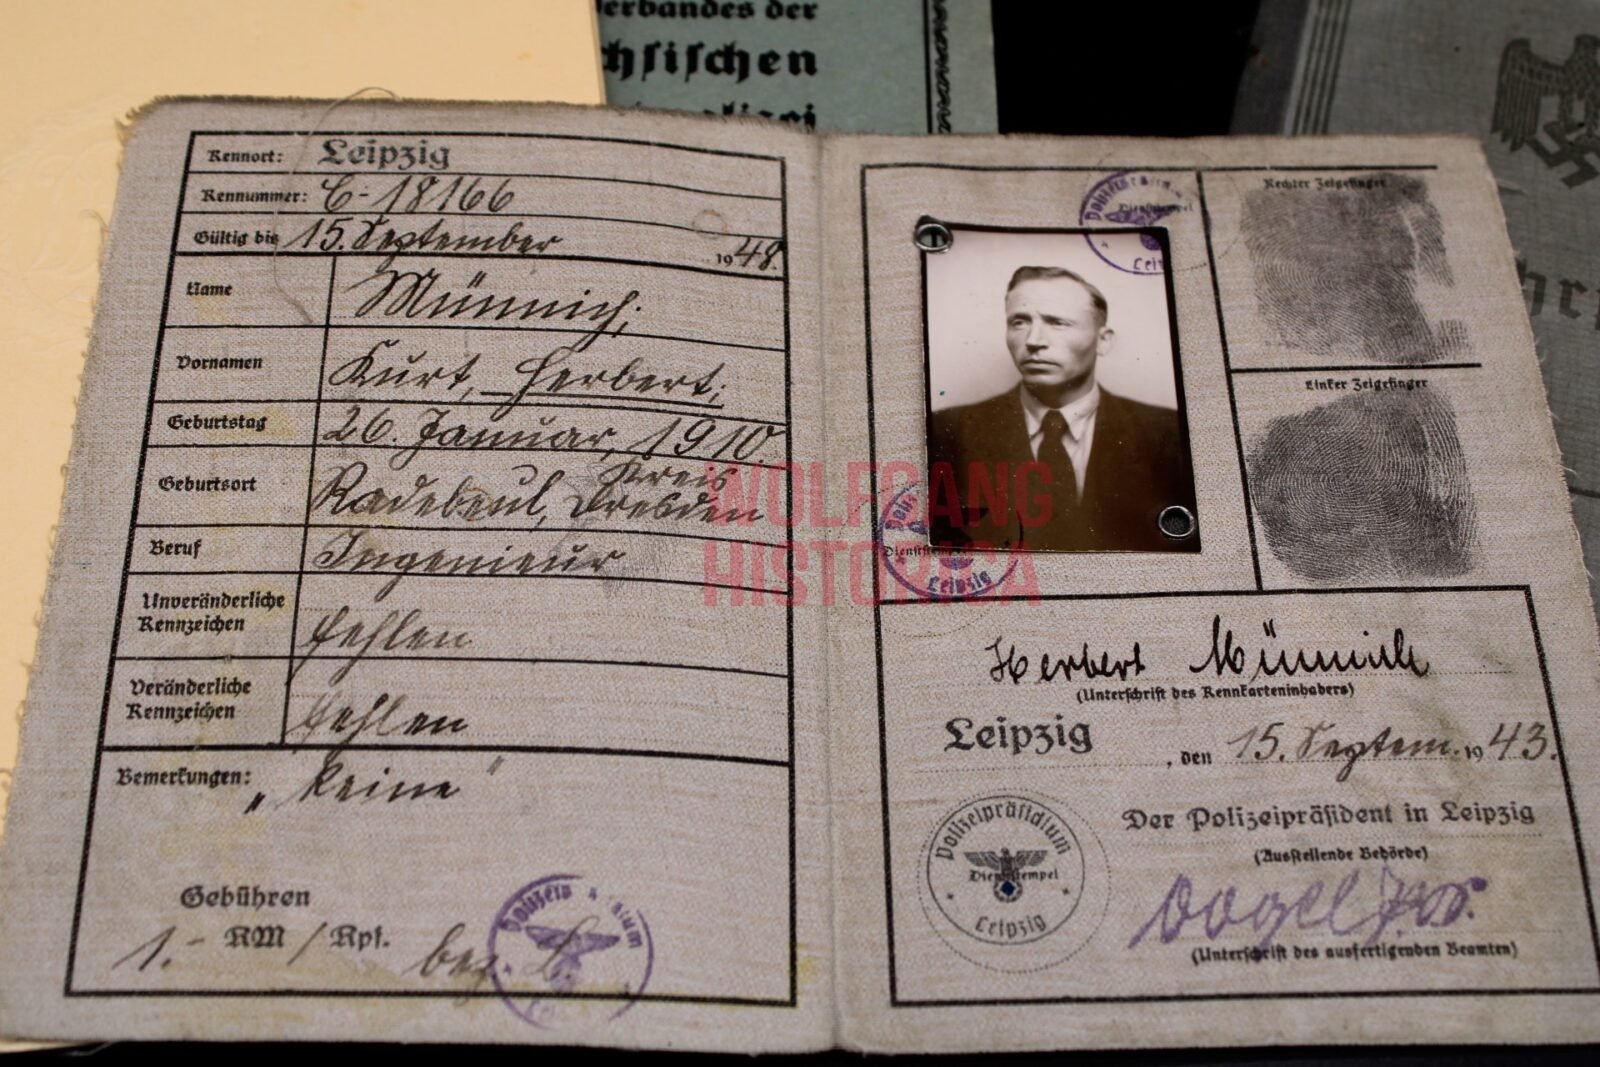 erbandes der
chsischen
Kennort: Leipzig
Kennummer: C-18166
Gültig bis 15. September 1948.
Name Münnich,
Vornamen Kurt, Herbert,
Geburtstag 26. Januar, 1910.
Geburtsort Radebeul, Kreis Dresden
Beruf Ingenieur
Unveränderliche Kennzeichen fehlen
Veränderliche Kennzeichen fehlen
Bemerkungen: „keine"
Gebühren
1.- RM / Rpf. bez.
Dienststempel
Leipzig
Rechter Zeigefinger
Linker Zeigefinger
Herbert Münnich
(Unterschrift des Kennkarteninhabers)
Leipzig, den 15. Septem. 1943.
Der Polizeipräsident in Leipzig
(Ausstellende Behörde)
Polizeipräsidium
Dienststempel
Leipzig
Vogel
(Unterschrift des ausfertigenden Beamten)
WOLFGANG
HISTORICA